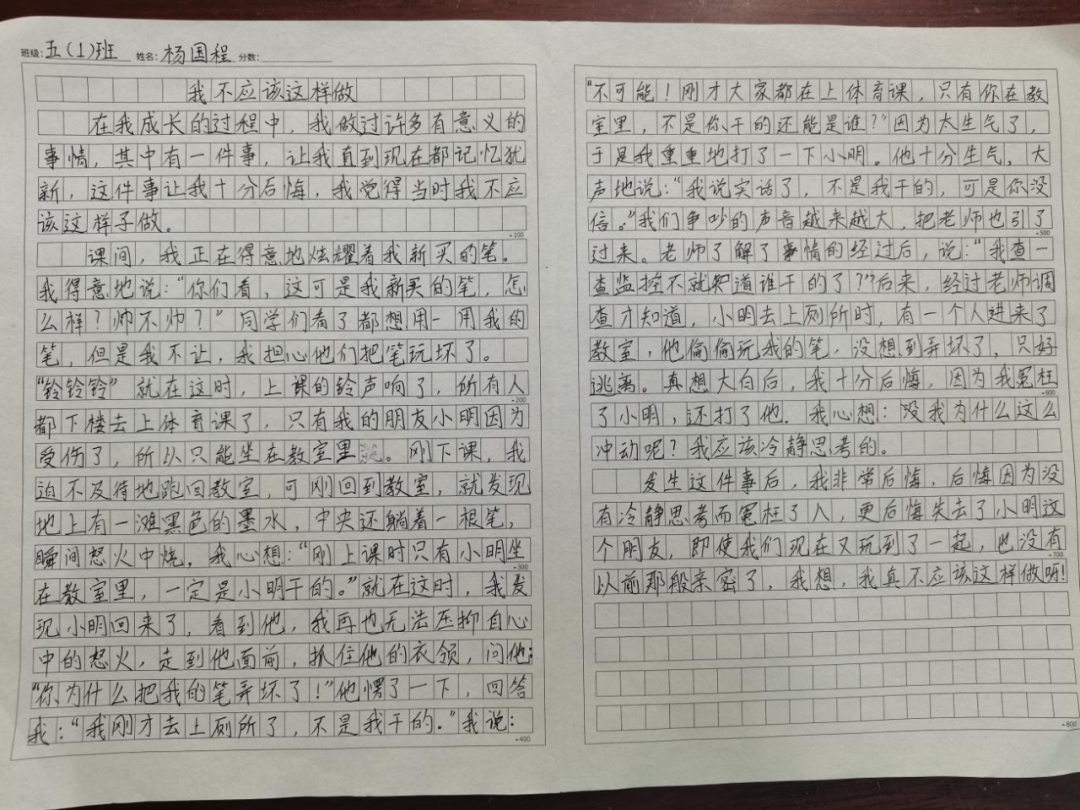 班级:五(1)班 姓名:杨国程 分数:
我不应该这样做
在我成长的过程中，我做过许多有意义的
事情，其中有一件事，让我直到现在都记忆犹
新，这件事让我十分后悔，我觉得当时我不应
该这样子做。
-100
课间，我正在得意地炫耀着我新买的笔。
我得意地说：“你们看，这可是我新买的笔，怎
么样？帅不帅？”同学们看了都想用一用我的
笔，但是我不让，我担心他们把笔玩坏了。
“铃铃铃”就在这时，上课的铃声响了，所有人
-200
都下楼去上体育课了，只有我的朋友小明因为
受伤了，所以只能坐在教室里。刚下课，我
迫不及待地跑回教室，可刚回到教室，就发现
地上有一滩黑色的墨水，中央还躺着一根笔，
瞬间怒火中烧。我心想：“刚上课时只有小明坐
-300
在教室里，一定是小明干的。”就在这时，我发
现小明回来了，看到他，我再也无法压抑自心
中的怒火，走到他面前，抓住他的衣领，问他：
“你为什么把我的笔弄坏了！”他愣了一下，回答
我：“我刚才去上厕所了，不是我干的。”我说：
-400
“不可能！刚才大家都在上体育课，只有你在教
室里，不是你干的还能是谁？”因为太生气了，
于是我重重地打了一下小明。他十分生气，大
声地说：“我说实话了，不是我干的，可是你没
信。”我们争吵的声音越来越大，把老师也引了
-500
过来。老师了解了事情的经过后，说：“我查一
查监控不就知道谁干的了？”后来，经过老师调
查才知道，小明去上厕所时，有一个人进来了
教室，他偷偷玩我的笔，没想到弄坏了，只好
逃离。真想大白后，我十分后悔，因为我冤枉
-600
了小明，还打了他。我心想：没我为什么这么
冲动呢？我应该冷静思考的。
发生这件事后，我非常后悔，后悔因为没
有冷静思考而冤枉了人，更后悔失去了小明这
个朋友，即使我们现在又玩到了一起，也没有
-700
以前那般亲密了，我想，我真不应该这样做呀！
-800